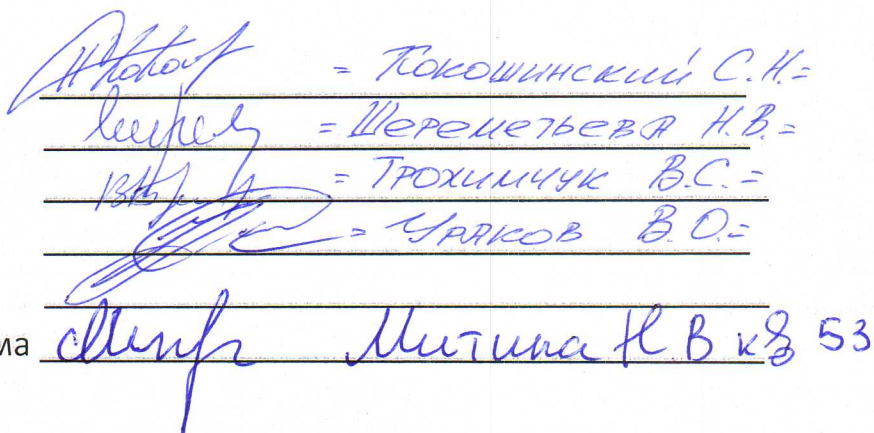 = Кокошинский С.Н.=
= Шереметьева Н.В.=
= Трохимчук В.С.=
В.О.=
ма Митина Н В кв 53